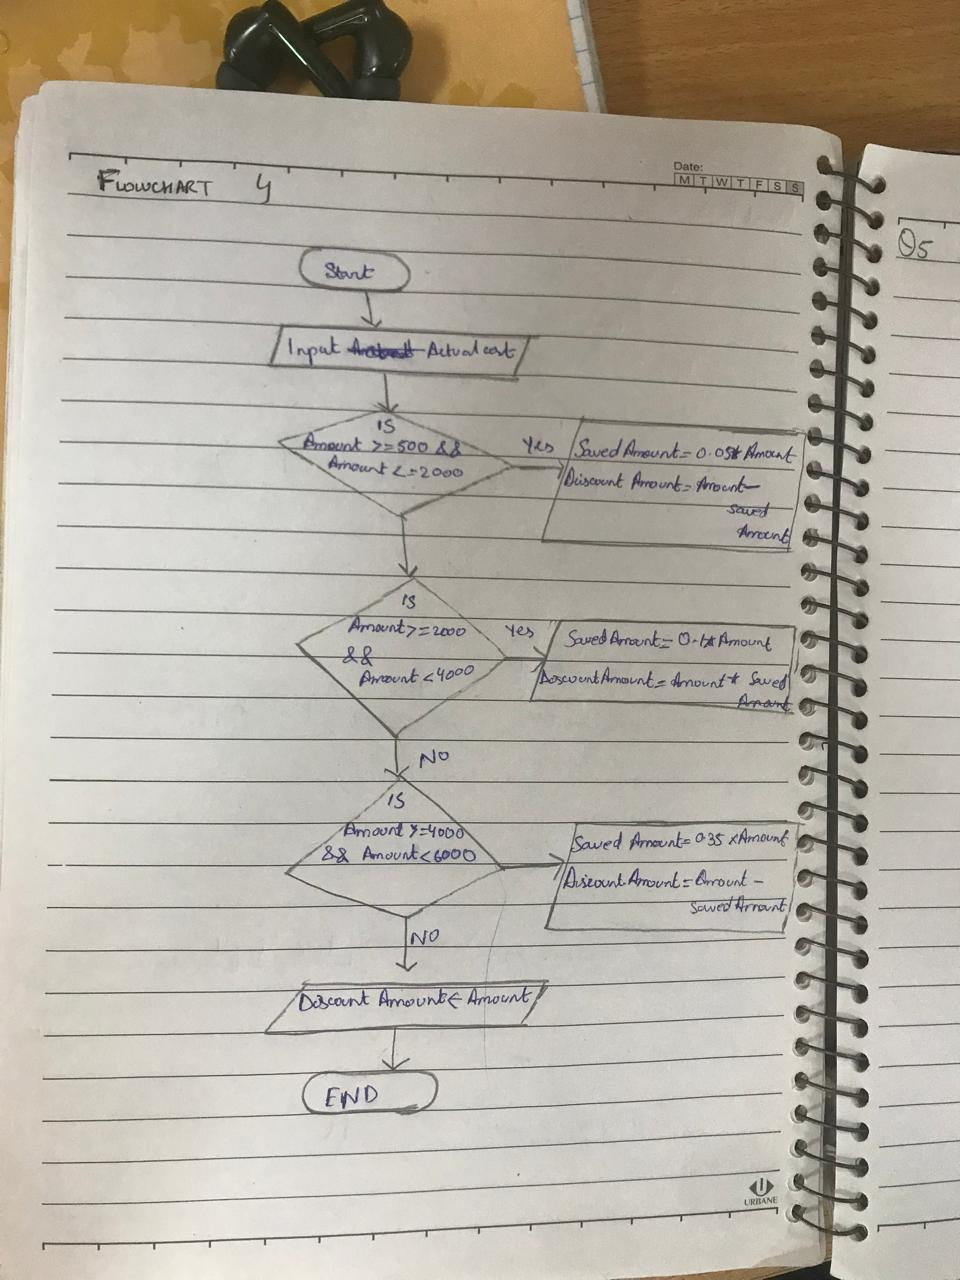 Date:
M T W T F S S
FLOWCHART 4
Q5
Start
Input Actual cost
IS
Amount >=500 &&
Amount <=2000
Yes
Saved Amount = 0.05* Amount
Discount Amount = Amount-
saved
Amount
IS
Amount>=2000
&&
Amount <4000
Yes
Saved Amount = 0.1* Amount
Doscount Amount = Amount * Saved
Amount
NO
IS
Amount >=4000
&& Amount <6000
Saved Amount = 0.35 x Amount
Discount Amount = Amount -
Saved Amount
NO
Doscount Amount < Amount
END
URBANE